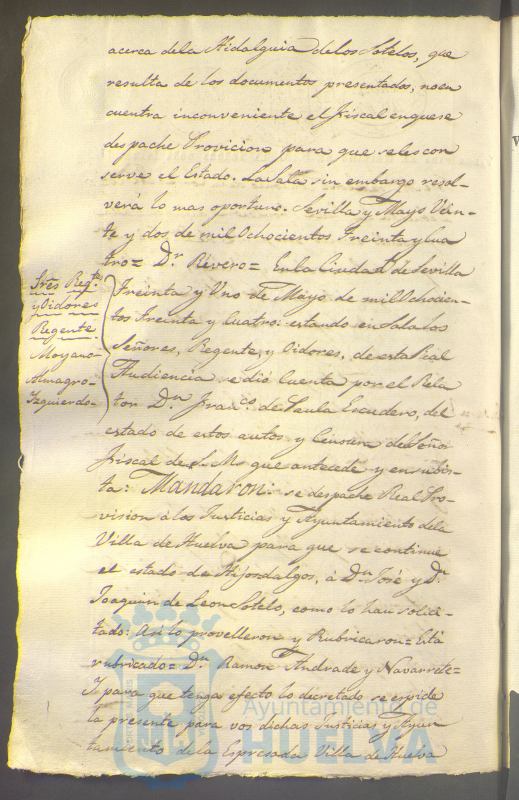 acerca dela Hidalguia delos Sotelos, que
resulta de los documentos presentados, no en
cuentra inconveniente el Fiscal enquese
despache Provicion para que seles con
serve el Estado. LaSala sin embargo resol-
verá lo mas oportuno. Sevilla y Mayo Vein-
te y dos de mil Ochocientos Treinta y Cua
tro= Dr. Rivero= En la Ciudad de Sevilla
Sres Regte
y Oidores
Regente
Moyano-
Almagro-
Izquierdo-
Treinta y Uno de Mayo de mil Ochocien-
tos Treinta y Cuatro: estando en Sala los
Señores, Regente, y Oidores, de esta Real
Audiencia se dió Cuenta por el Rela
tor Dn. Franco. de Paula Escudero, del
estado de estos autos y Censura del Señor
Fiscal de S. M. que antecede y en su vis-
ta: Mandaron: se despache Real Pro-
vision á los Justicias y Ayuntamiento dela
Villa de Huelva para que se continue
el estado de Hijosdalgos, á Dn. José y Dn.
Joaquin de Leon Sotelo, como lo han solici-
tado: Asi lo provelleron y Rubricaron= Está
rubricado= Dn. Ramon Andrade y Navarrete=
Y para que tenga efecto lo decretado se espide
la presente para vos dichas Justicias y Ayun
tamiento dela Espresada Villa de Huelva
Ayuntamiento de
HUELVA